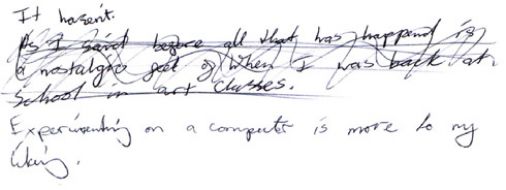 It hasent.
As I said before all that has happend is
a nostalgic feel of when I was back at
school in art classes.
Experimenting on a computer is more to my
liking.